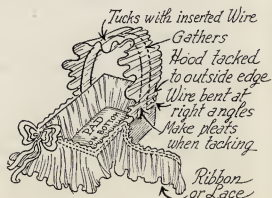 Tucks with inserted Wire
Gathers
Hood tacked
to outside edge
Wire bent at
right angles
Make pleats
when tacking
PAD
ON BOTTOM
Ribbon
or Lace